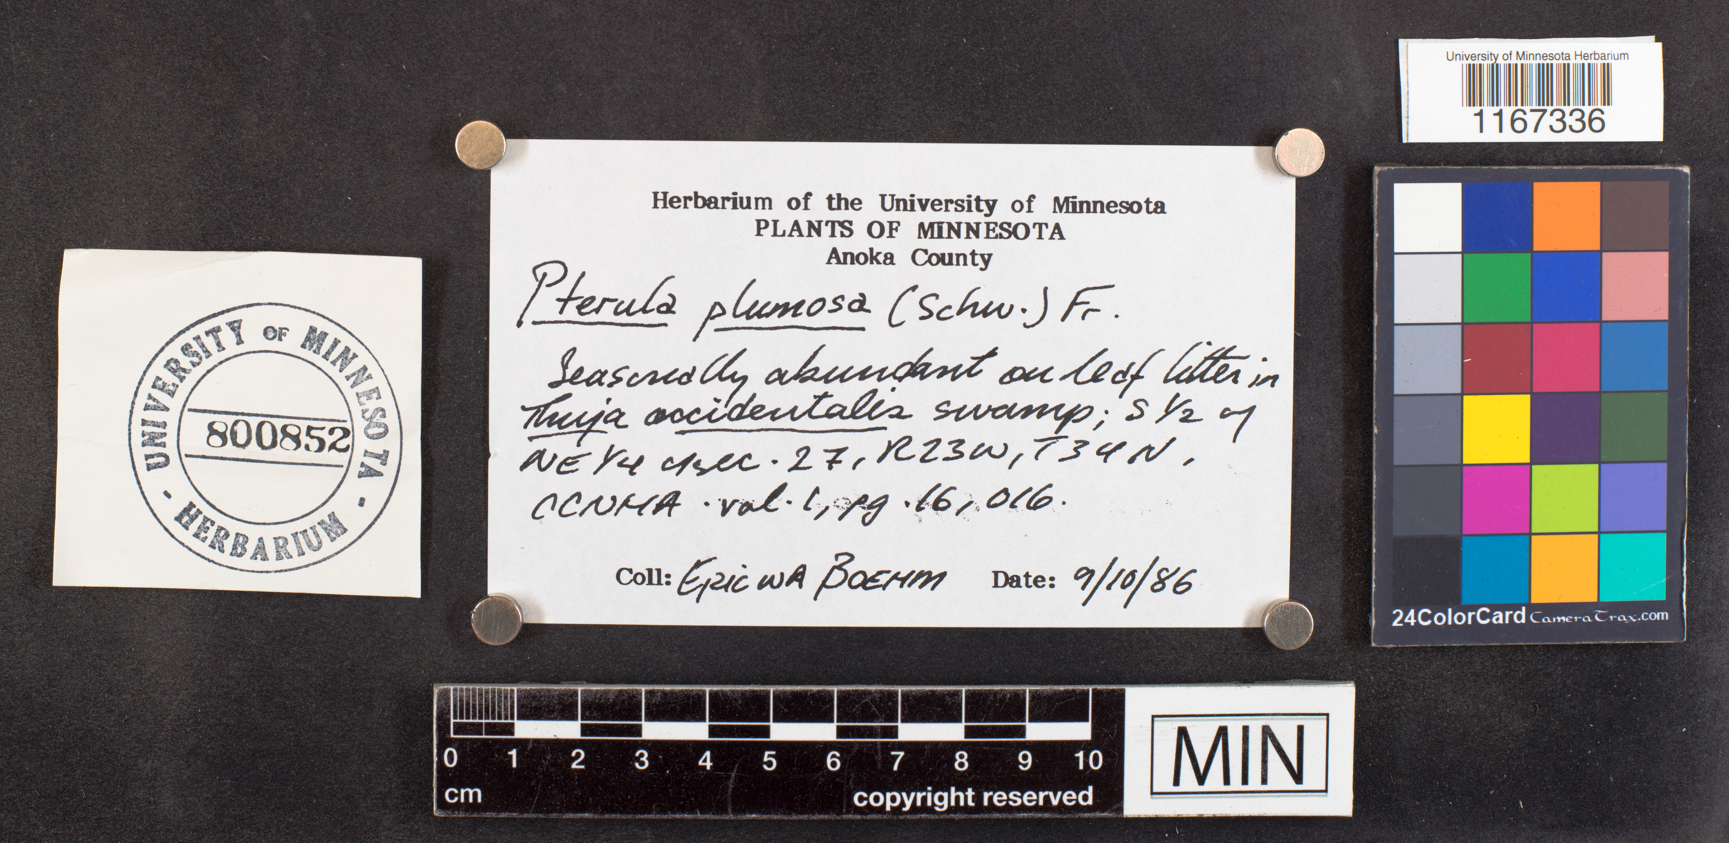 University of Minnesota Herbarium
1167336
Herbarium of the University of Minnesota
PLANTS OF MINNESOTA
Anoka County
Pterula plumosa (Schw.) Fr.
Seasonally abundant on leaf litter in
Thuja occidentalis swamp; S 1/2 of
NE 1/4 of sec. 27, R23W, T34N,
CCNHA. vol. 1, pg. 16, 016.
Coll: Eric WA Boehm Date: 9/10/86
UNIVERSITY OF MINNESOTA
800852
- HERBARIUM -
24ColorCard CameraTrax.com
0 1 2 3 4 5 6 7 8 9 10
cm copyright reserved
MIN